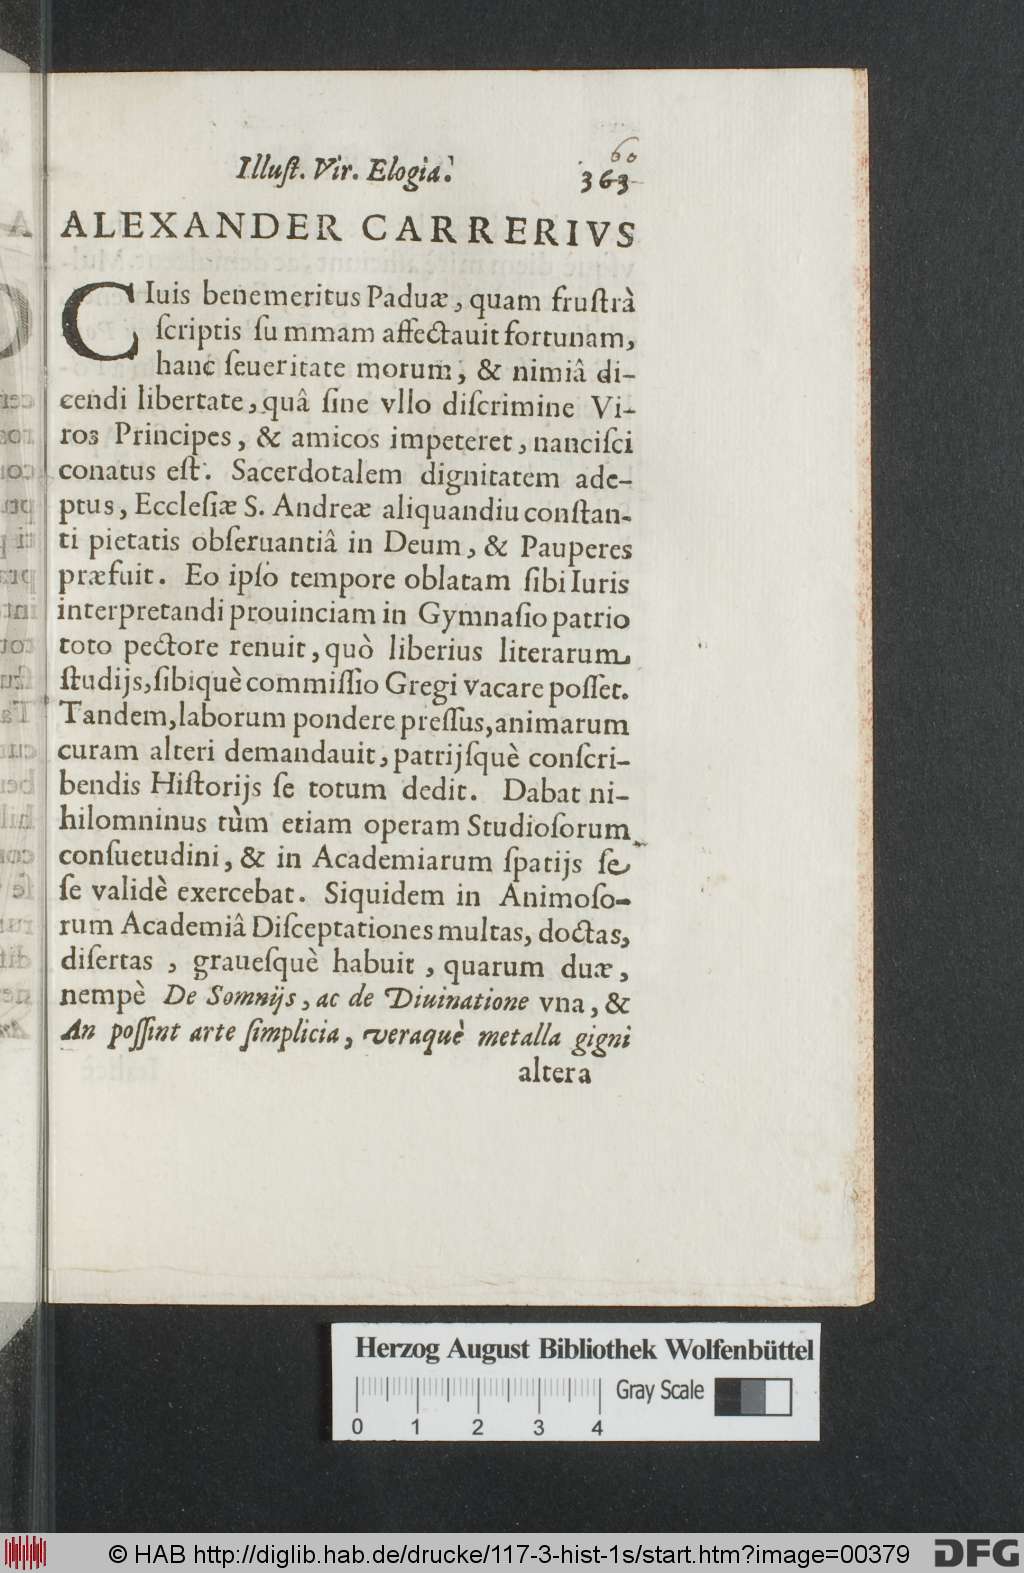 Illuſt. Vir. Elogia.
60
363
ALEXANDER CARRERIVS
CIuis benemeritus Paduæ, quam fruſtrà
ſcriptis ſummam affectauit fortunam,
hanc ſeueritate morum, & nimiâ di-
cendi libertate, quâ ſine vllo diſcrimine Vi-
ros Principes, & amicos impeteret, nanciſci
conatus eſt. Sacerdotalem dignitatem ade-
ptus, Eccleſiæ S. Andreæ aliquandiu conſtan-
ti pietatis obſeruantiâ in Deum, & Pauperes
præfuit. Eo ipſo tempore oblatam ſibi Iuris
interpretandi prouinciam in Gymnaſio patrio
toto pectore renuit, quò liberius literarum
ſtudijs, ſibiquè commiſſio Gregi vacare poſſet.
Tandem, laborum pondere preſſus, animarum
curam alteri demandauit, patrijſquè conſcri-
bendis Hiſtorijs ſe totum dedit. Dabat ni-
hilomninus tùm etiam operam Studioſorum
conſuetudini, & in Academiarum ſpatijs ſe
ſe validè exercebat. Siquidem in Animoſo-
rum Academiâ Diſceptationes multas, doctas,
diſertas, graueſquè habuit, quarum duæ,
nempè De Somnijs, ac de Diuinatione vna, &
An poſſint arte ſimplicia, veraquè metalla gigni
altera
Herzog August Bibliothek Wolfenbüttel
Gray Scale
0 1 2 3 4
© HAB http://diglib.hab.de/drucke/117-3-hist-1s/start.htm?image=00379
DFG